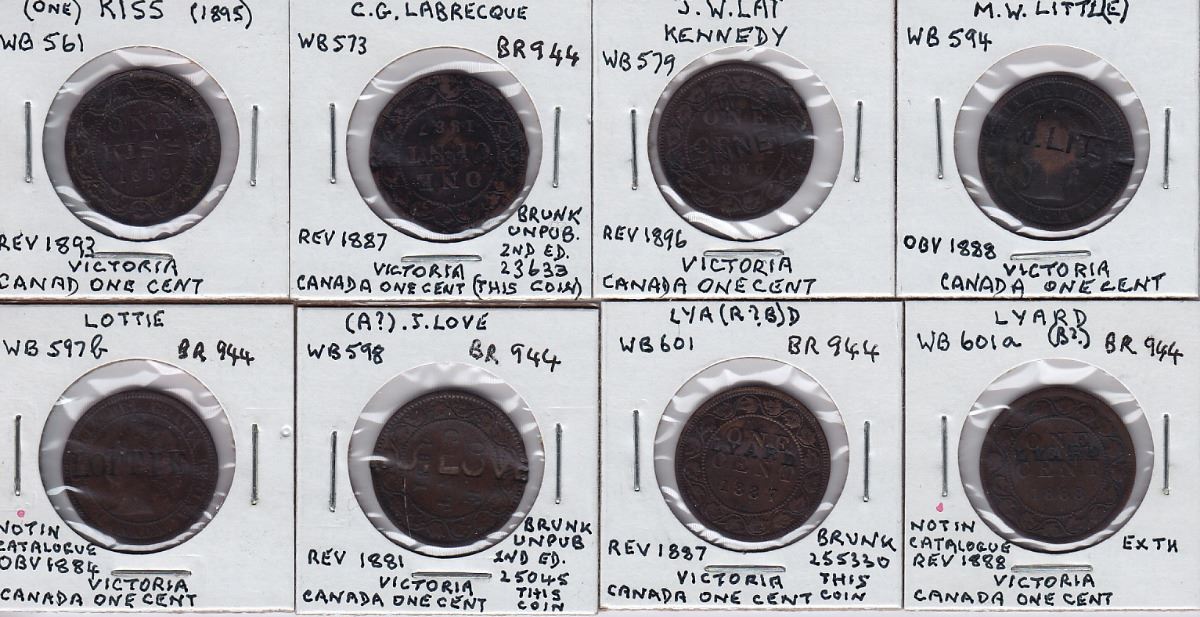 (ONE) KISS (1895)
WB 561
ONE
KISS
1893
REV 1893
VICTORIA
CANAD ONE CENT
C.G. LABRECQUE
WB573 BR 944
1887
ONE
REV 1887
BRUNK
UNPUB.
2ND ED.
23633
VICTORIA
CANADA ONE CENT (THIS COIN)
J.W. LAT
KENNEDY
WB 579
ONE
NNE
1896
REV 1896
VICTORIA
CANADA ONE CENT
M.W. LITTL(E)
WB 594
.LIT
OBV 1888
VICTORIA
CANADA ONE CENT
LOTTIE
WB 597b BR 944
LOTTIE
NOT IN
CATALOGUE
OBV 1884
VICTORIA
CANADA ONE CENT
(A?).J.LOVE
WB 598 BR 944
J.LOVE
REV 1881
BRUNK
UNPUB
2ND ED.
25045
THIS
COIN
VICTORIA
CANADA ONE CENT
LYA(R?B)D
WB 601 BR 944
ONE
LYARD
CENT
1887
REV 1887
BRUNK
255330
THIS
COIN
VICTORIA
CANADA ONE CENT
LYARD
(B?)
WB 601a BR 944
ONE
LYARD
CENT
1888
NOT IN
CATALOGUE
REV 1888
EX TH
VICTORIA
CANADA ONE CENT